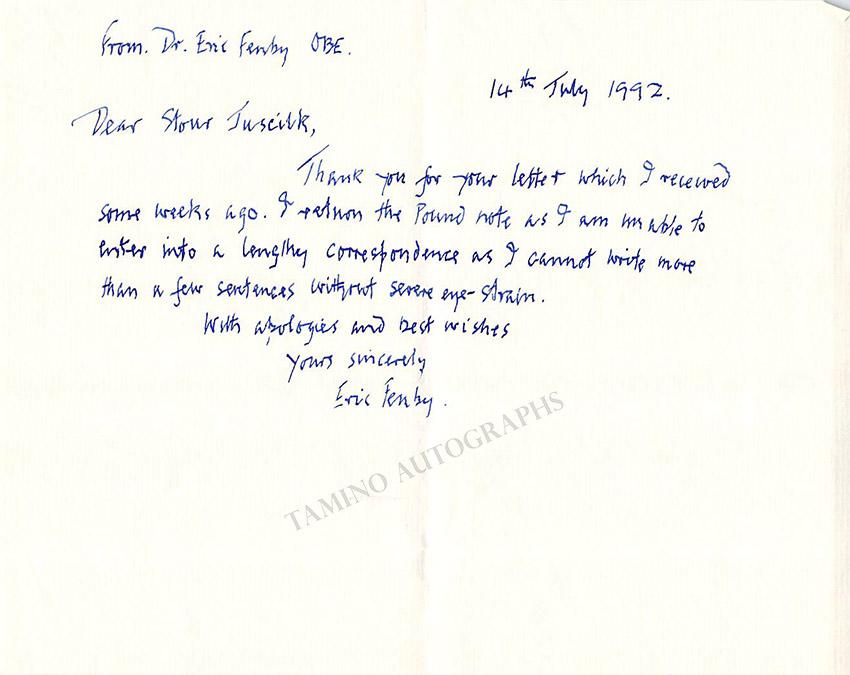 From. Dr. Eric Fenby OBE.
14th July 1992.
Dear
Thank you for your letter which I received
some weeks ago. I return the Pound note as I am unable to
enter into a lengthy correspondence as I cannot write more
than a few sentences without severe eye-strain.
With apologies and best wishes
yours sincerely
Eric Fenby.
TAMINO AUTOGRAPHS